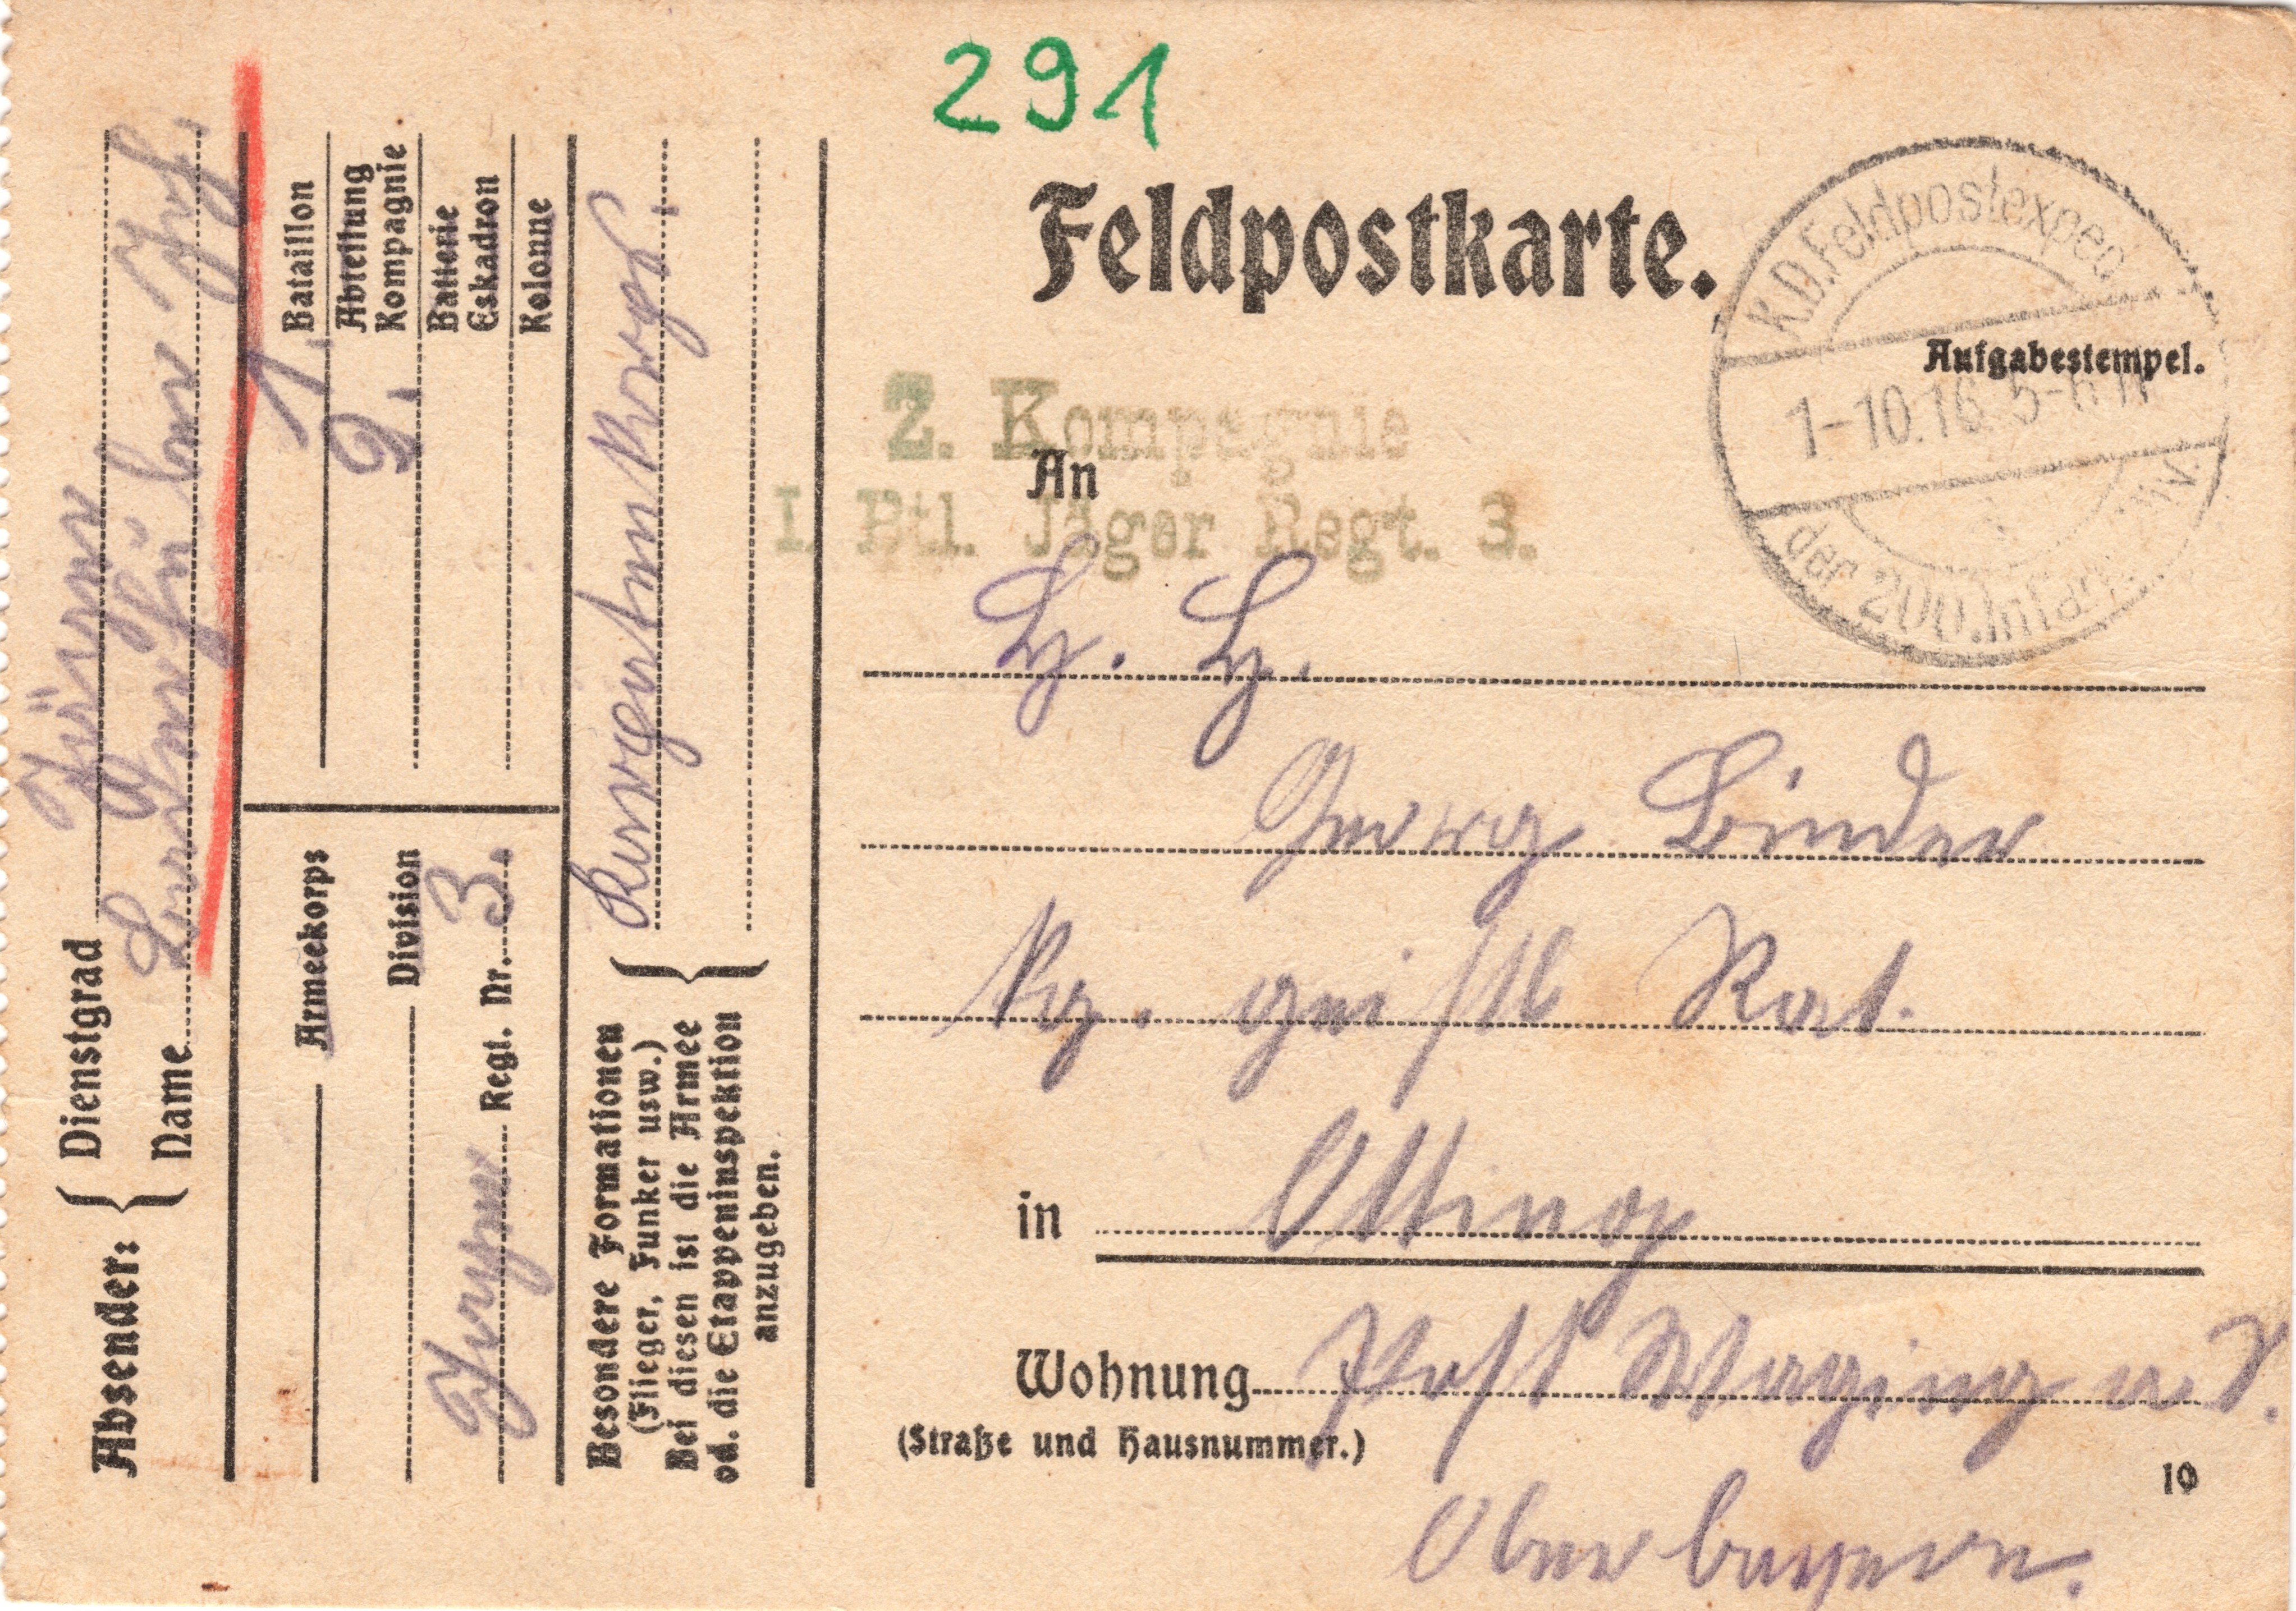 291
Feldpostkarte.
K.D.Feldpostexped
1-10.16. 5-6 N
der 200. Infanterie Div.
Aufgabestempel.
2. Kompagnie
I. Btl. Jäger Regt. 3.
An
H. H.
Georg Binder
Kg. geistl Rat.
in Otting
Wohnung Post Waging a. S.
(Straße und Hausnummer.)
Oberbayern.
10
Absender:
Dienstgrad Jäger
Name Jos.
1. Bataillon
2. Abteilung
Kompagnie
Batterie
Eskadron
Kolonne
Armeekorps
Division
Jäger Regt. Nr. 3.
Besondere Formationen
(Flieger, Funker usw.)
Bei diesen ist die Armee
od. die Etappeninspektion
anzugeben.
Karpathenkorps.